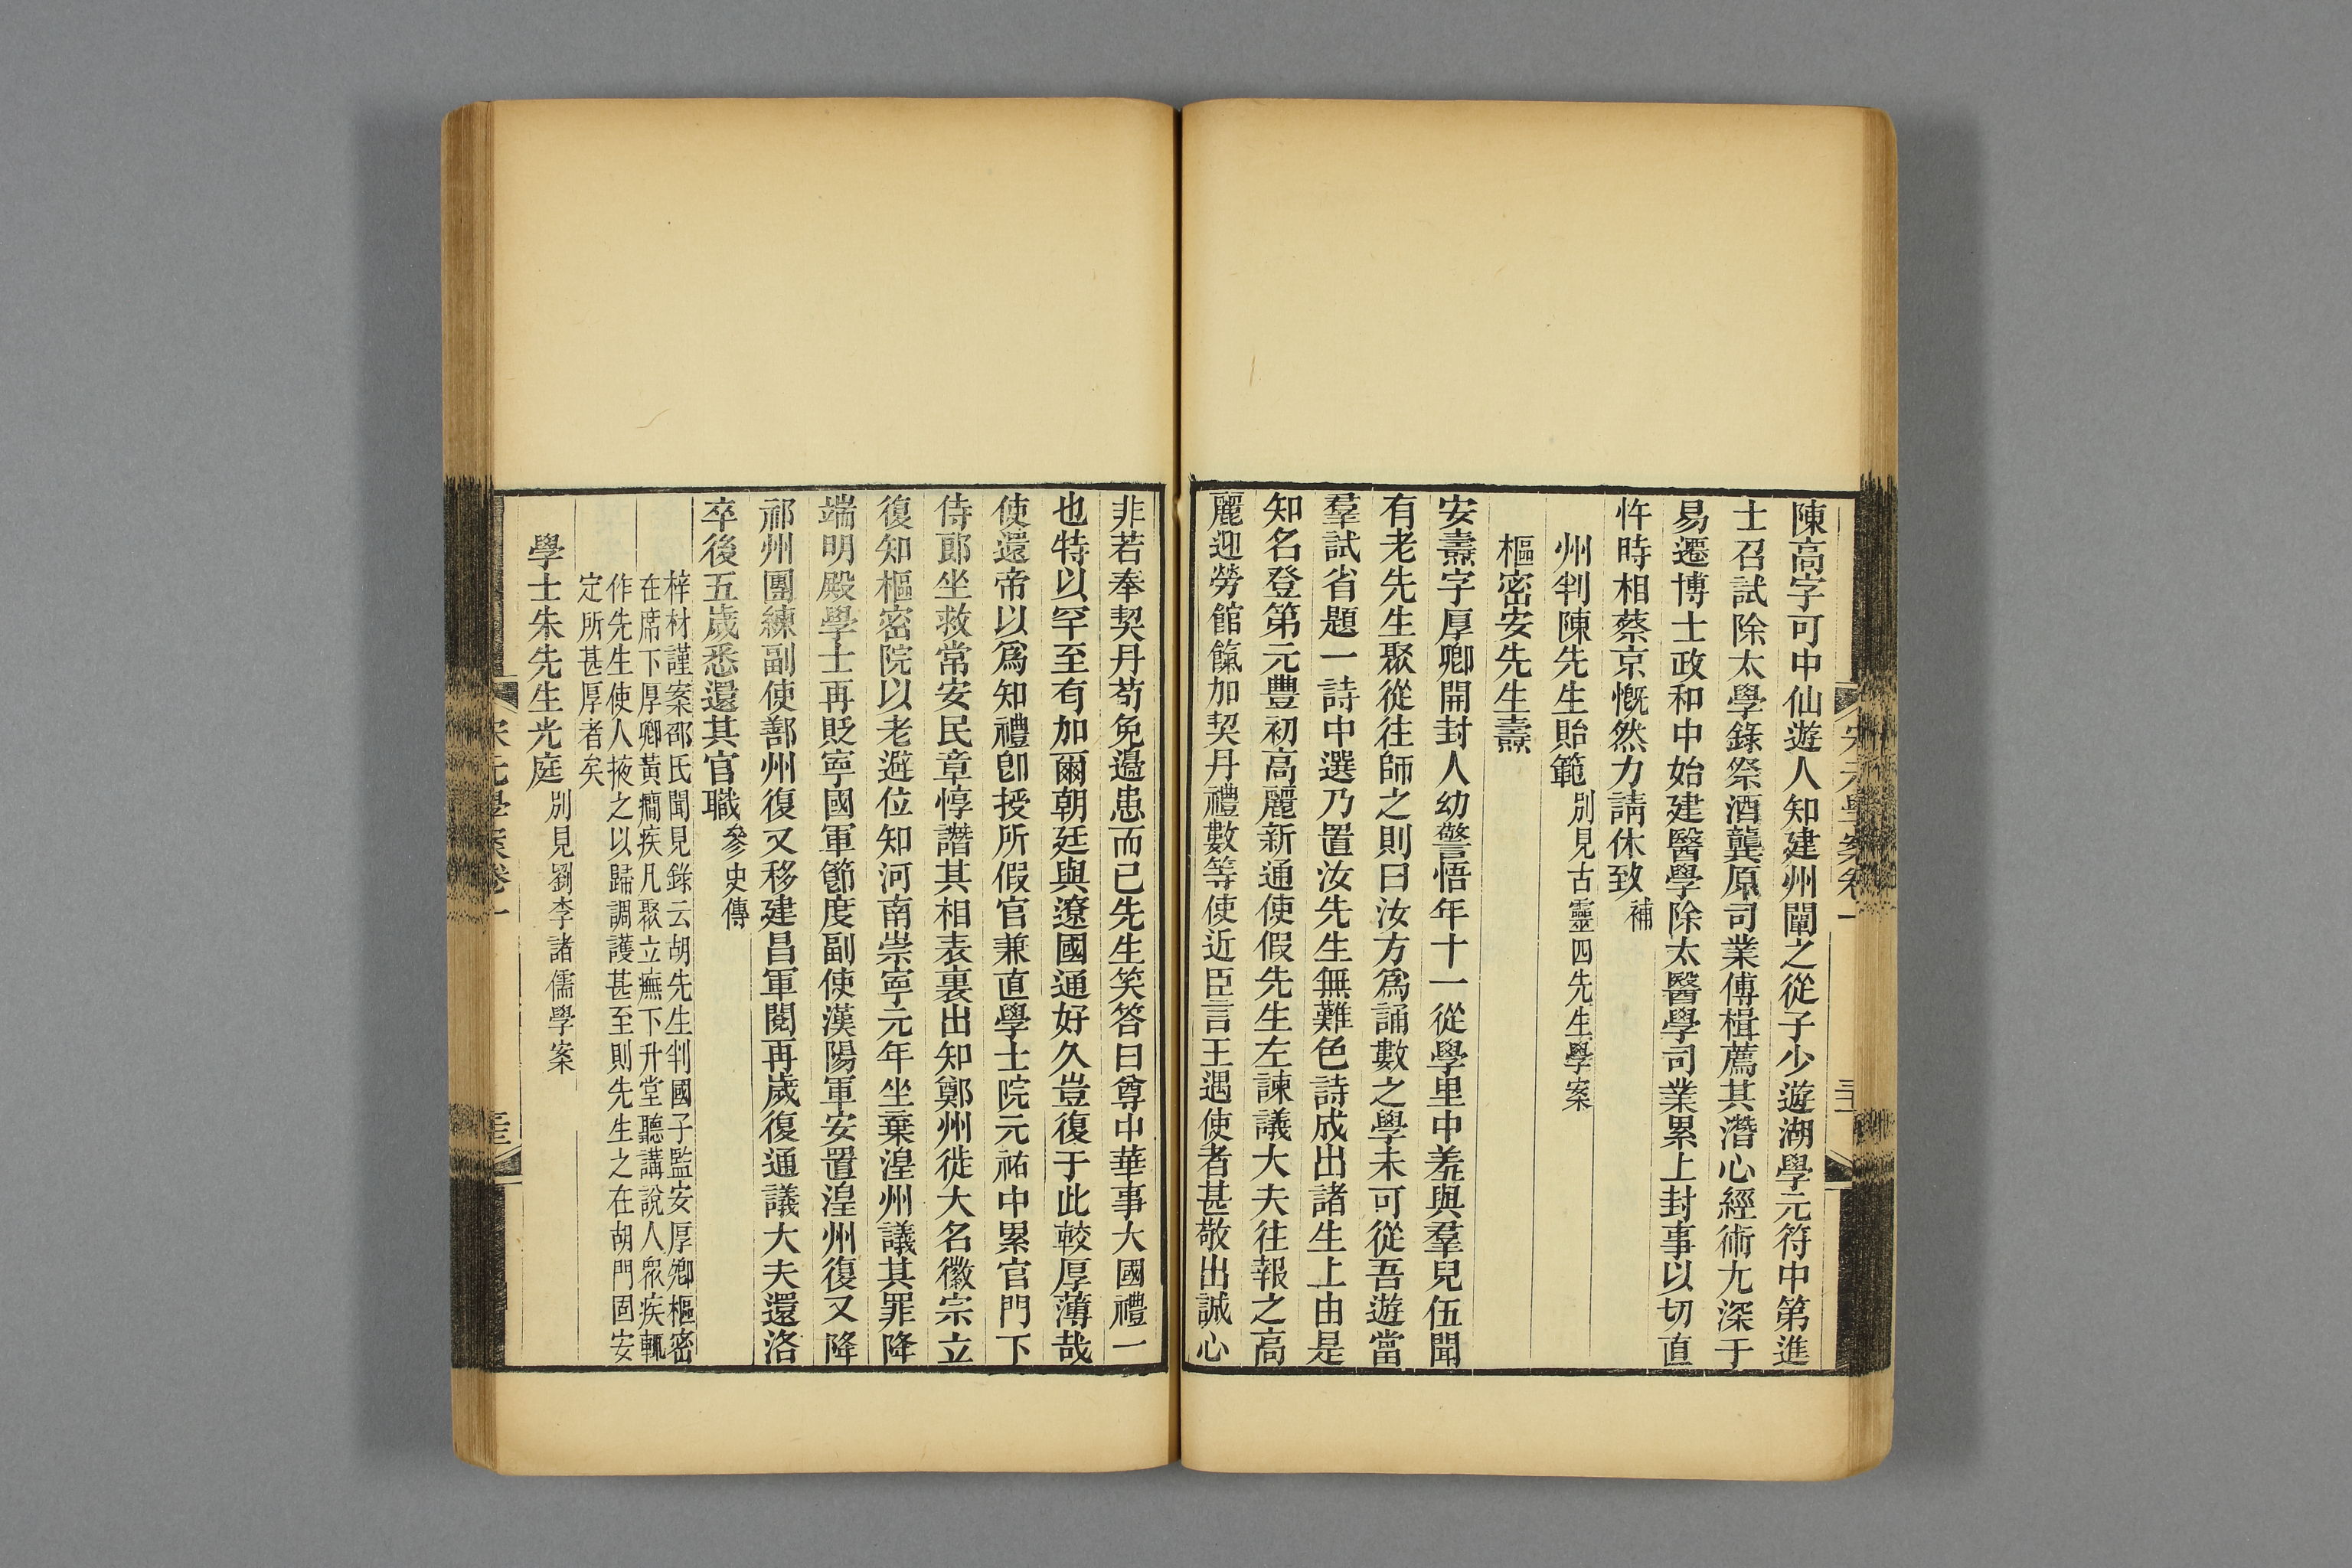 陳高字可中仙遊人知建州闡之從子少遊湖學元符中第進
士召試除太學錄祭酒龔原司業傅楫薦其潛心經術尢深于
易遷博士政和中始建醫學除太醫學司業累上封事以切直
忤時相蔡京慨然力請休致補
州判陳先生貽範別見古靈四先生學案
樞密安先生燾
安燾字厚卿開封人幼警悟年十一從學里中羞與羣兒伍聞
有老先生聚從往師之則曰汝方爲誦數之學未可從吾遊當
羣試省題一詩中選乃置汝先生無難色詩成出諸生上由是
知名登第元豐初高麗新通使假先生左諫議大夫往報之高
麗迎勞館餼加契丹禮數等使近臣言王遇使者甚敬出誠心
非若奉契丹苟免邊患而已先生笑答曰尊中華事大國禮一
也特以罕至有加爾朝廷與遼國通好久豈復于此較厚薄哉
使還帝以爲知禮卽授所假官兼直學士院元祐中累官門下
侍郎坐救常安民章惇譖其相表裏出知鄭州徙大名徽宗立
復知樞密院以老避位知河南崇寧元年坐棄湟州議其罪降
端明殿學士再貶寧國軍節度副使漢陽軍安置湟州復又降
祁州團練副使鄯州復又移建昌軍閱再歲復通議大夫還洛
卒後五歲悉還其官職參史傳
梓材謹案邵氏聞見錄云胡先生判國子監安厚卿樞密
在席下厚卿黃癎疾凡聚立廡下升堂聽講說人衆疾輒
作先生使人掖之以歸調護甚至則先生之在胡門固安
定所甚厚者矣
學士朱先生光庭別見劉李諸儒學案
宋元學案卷一